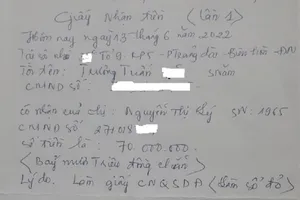 Giấy Nhận tiền (lần 1)
Hôm nay ngày 13 tháng 6 năm 2022
Tại số nhà Tổ 9 KP5 - P Trảng Dài - Biên Hòa - ĐN
Tôi tên: Trương Tuấn Sinh năm
CMND số:
có nhận của chị: Nguyễn Thị Lý SN: 1965
CMND số 271018
số tiền là: 70.000.000
(Bảy mươi Triệu đồng chẵn)
Lý do. Làm giấy CNQSDĐ (Làm sổ đỏ)